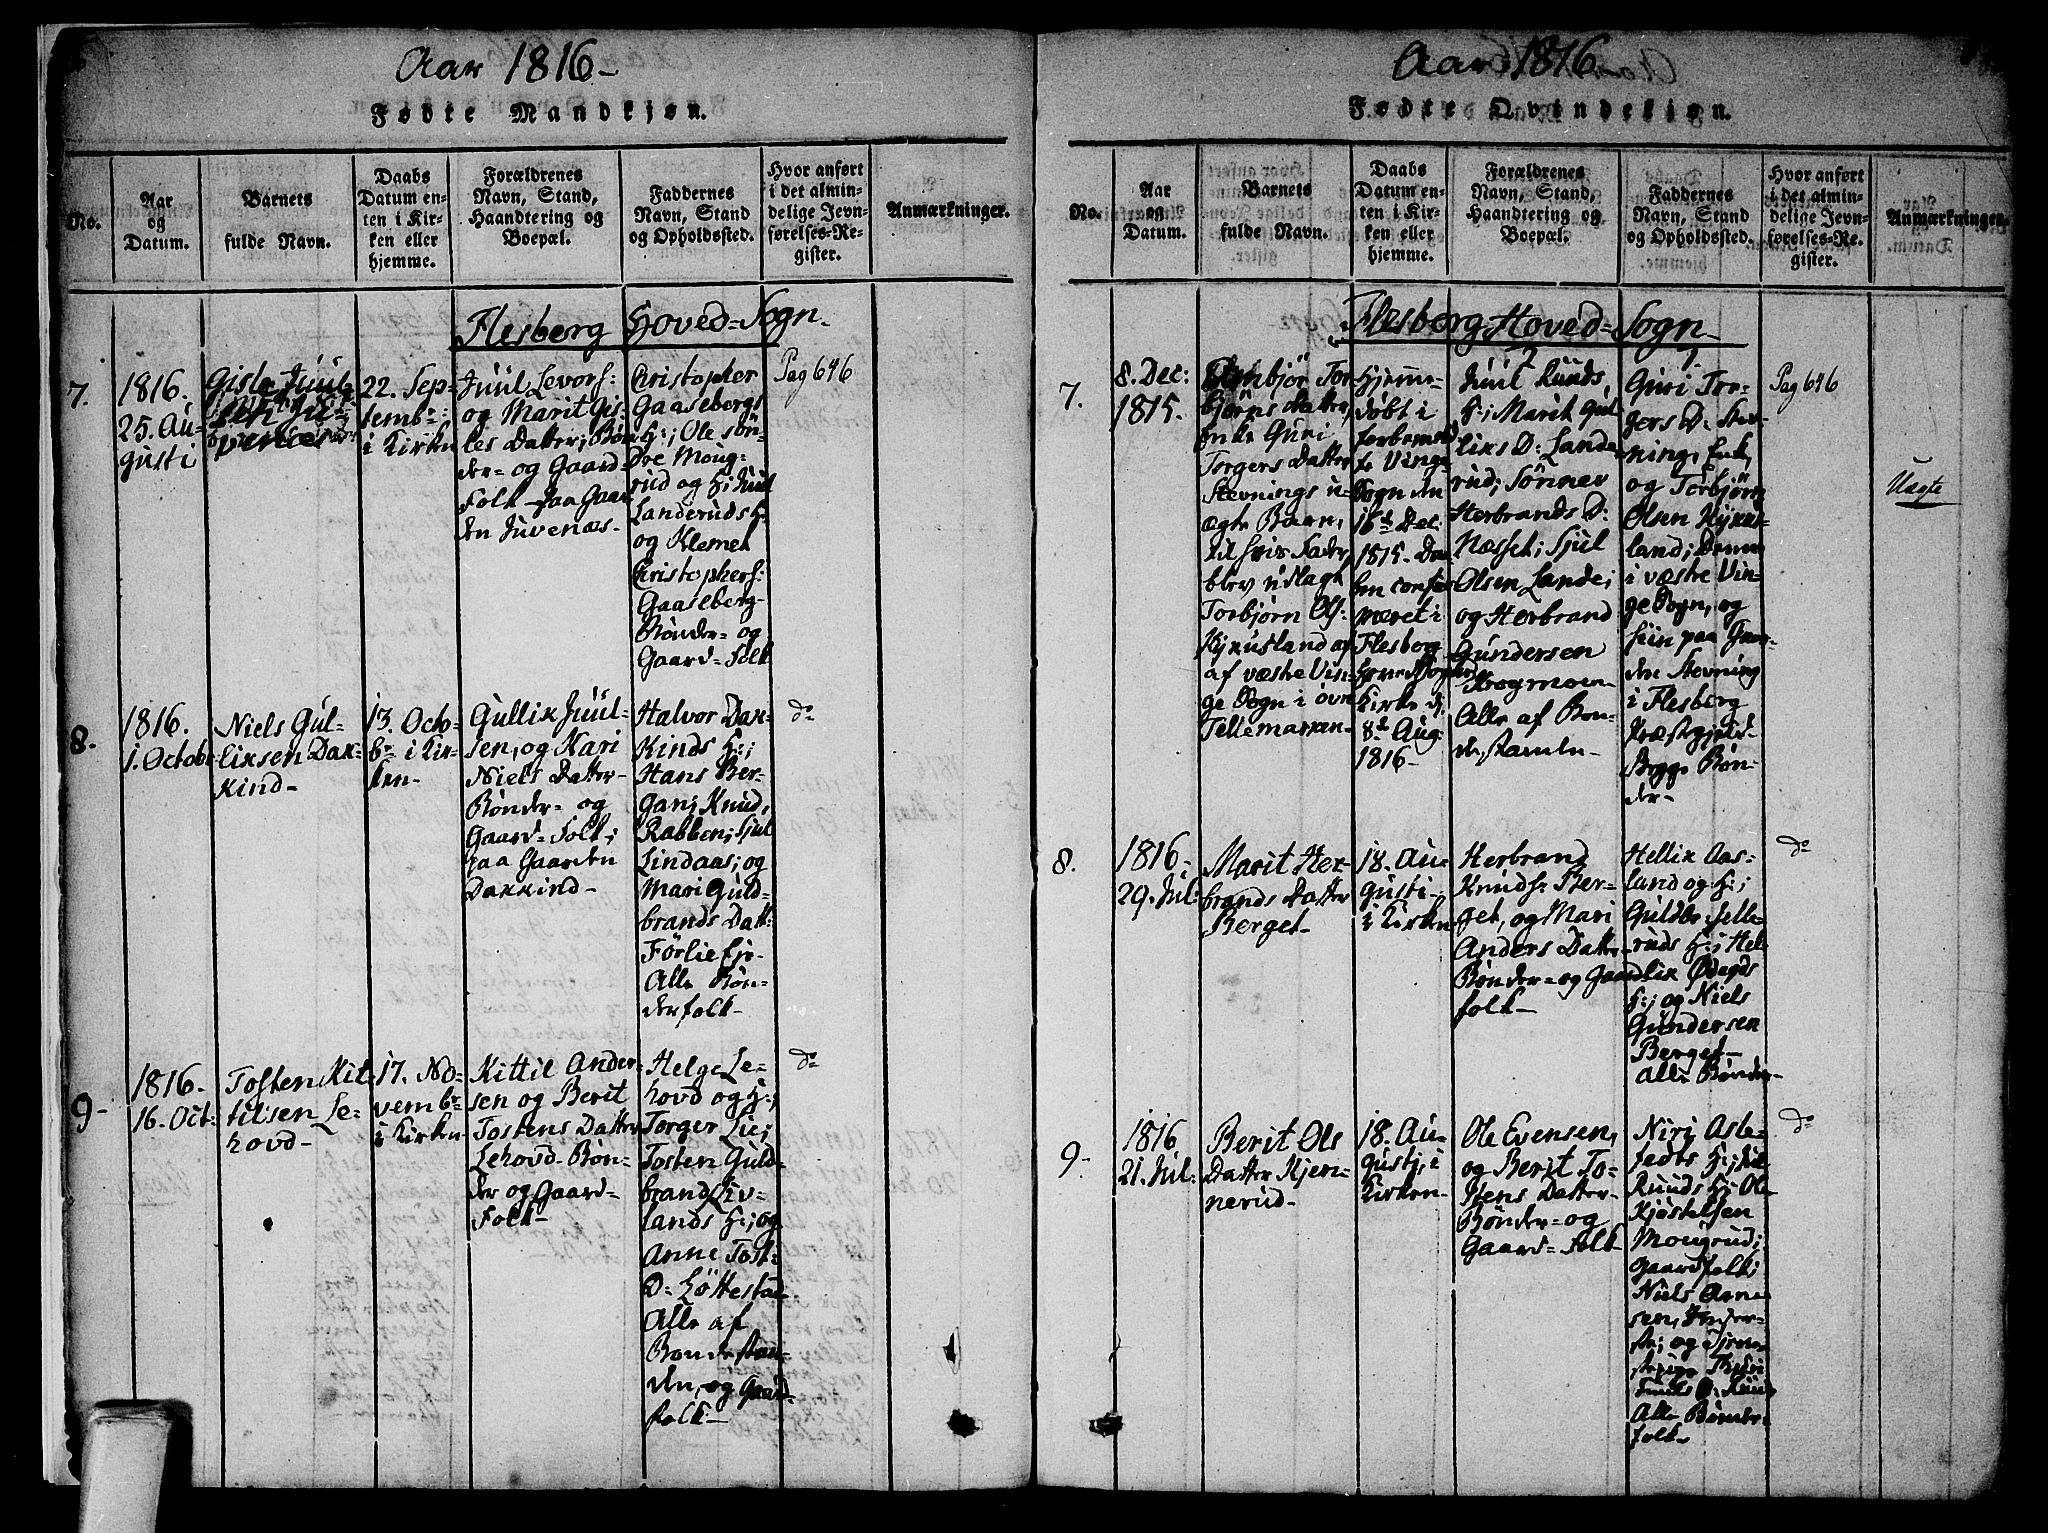 Aar 1816-
Fødte Mandkjøn.
No.
Aar
og
Datum.
Barnets
fulde Navn.
Daabs
Datum en-
ten i Kir-
ken eller
hjemme.
Forældrenes
Navn, Stand,
Haandtering og
Boepæl.
Faddernes
Navn, Stand
og Opholdssted.
Hvor anført
i det almin-
delige Jevn-
førelses-Re-
gister.
Anmærkninger.
Flesberg Hoved-Sogn.
7.
1816.
25. Au-
gusti
Gisle Juul-
sen Ju-
venæs
22. Sep-
tembr:
i Kirken
Juul Levors:
og Marit Gis-
les Datter; Bøn-
der- og Gaard-
Folk paa Gaar-
den Juvenæs-
Christopher
Gaasebergs
H:; Ole søn-
dre Moug-
rud og H; Juul
Landeruds H:
og Klemet
Christophers:
Gaaseberg-
Bønder- og
Gaard-Folk
Pag 646
8.
1816.
1. Octobr
Niels Gul-
liksen Dak-
kind-
13. Octo-
br i Kir-
ken-
Gullik Juul-
sen, og Kari
Niels Datter-
Bønder- og
Gaard-Folk;
paa Gaarden
Dakkind-
Halvor Dak-
kinds H:;
Hans Ber-
gan; Knud
Rabben; Sjul
Lindaas; og
Mari Guld-
brands Datt:
Førlie Eje-
Alle Bøn-
derfolk-
do
9-
1816-
16. Oct:
Tosten Kit-
tilsen Le-
hovd-
17. No-
vembr-
i Kirken
Kittil Ander-
sen og Berit
Tostens Datter
Lehovd- Bøn-
der og Gaard-
Folk-
Helge Le-
hovd og H:;
Torger Lie;
Tosten Guld-
brands
lands H:; og
Anne Tost:
D: Løttestad
Alle af
Bondestan-
den, og Gaard-
folk-
do
Aar 1816
Fødte Qvindekjøn.
No.
Aar
og
Datum.
Barnets
fulde Navn.
Daabs
Datum en-
ten i Kir-
ken eller
hjemme.
Forældrenes
Navn, Stand,
Haandtering og
Boepæl.
Faddernes
Navn, Stand
og Opholdssted.
Hvor anført
i det almin-
delige Jevn-
førelses-Re-
gister.
Anmærkninger.
Flesberg Hoved-Sogn-
7.
8. Dec:
1815.
Tor-
bjørns Datter,
Enke Guri
Torgers Datter
Stevnings u-
ægte Barn,
til hvis Fader
blev udlagt
Torbjørn Ols:
af væste Vin-
je Sogn i øvre
Tellemarken-
Hjemme-
døbt i
Vinje
Sogn den
Dec:
1815. Da-
ben confir-
meret i
Flesberg
Hoved Sogns
Kirke d.
8de Aug
1816-
2
Juul Ruuds
H:; Marit Gul-
liks D: Lande-
rud; Sønnev
Herbrands D:
Næsset; Sjul
Olsen Lande;
og Herbrand
Gundersen
Skogmoen-
Alle af Bon-
destanden-
1.
Guri Tor-
gers D: Stev-
ning, Enke,
og Torbjørn
Olsen
land; Denne
i væste Vin-
je Sogn, og
hun paa Gaar-
den Stevning
i Flesberg
Præstegjeld-
Begge Bøn-
der-
Pag 646
Uægte
8.
1816-
29. Jul:
Marit Her-
brands Datter
Berget-
18. Au-
gusti-
i Kirken
Herbrand
Knuds: Ber-
get, og Mari
Anders Datter
Bønder- og Gaard-
folk-
Hellik Aas-
land og H:;
Guldbr: Felle-
ruds H:; Hel-
lik Ødegds
H:; og Niels
Gundersen
Berget-
Alle Bønder-
do
9-
1816
21. Jul:
Berit Ols
Datter Kjen-
nerud-
18. Au-
gusti, i
Kirken-
Ole Evensen,
og Berit To-
stens Datter-
Bønder- og
Gaard-Folk-
Niri Asle-
Ruuds H; Ole
Kjøstelsen
Mougrud;
Gaardfolk;
Niels Arne-
sen,
og Tjene-
Alle Bønder-
folk-
do